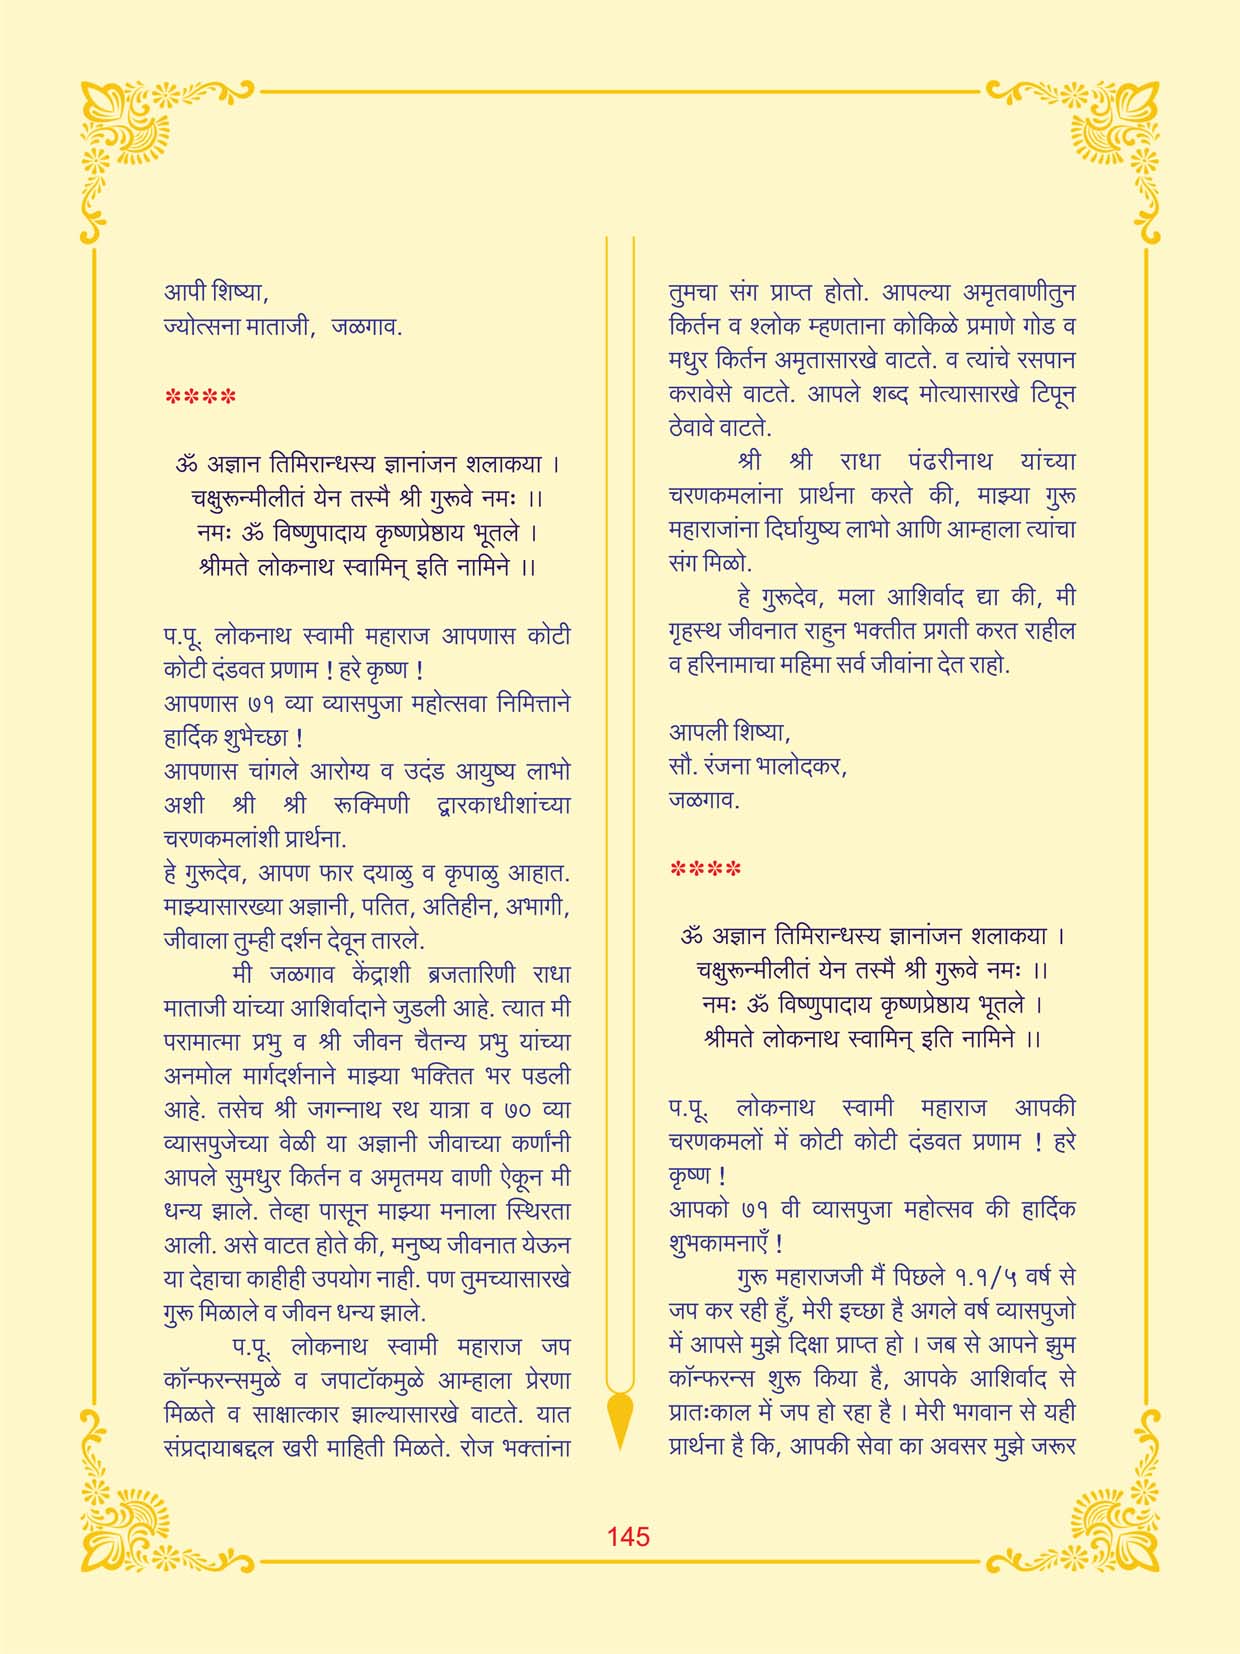 आपी शिष्या,
ज्योत्सना माताजी, जळगाव.
****
ॐ अज्ञान तिमिरान्धस्य ज्ञानांजन शलाकया ।
चक्षुरून्मीलीतं येन तस्मै श्री गुरूवे नमः ।।
नमः ॐ विष्णुपादाय कृष्णप्रेष्ठाय भूतले ।
श्रीमते लोकनाथ स्वामिन् इति नामिने ।।
प.पू. लोकनाथ स्वामी महाराज आपणास कोटी
कोटी दंडवत प्रणाम ! हरे कृष्ण !
आपणास ७१ व्या व्यासपुजा महोत्सवा निमित्ताने
हार्दिक शुभेच्छा !
आपणास चांगले आरोग्य व उदंड आयुष्य लाभो
अशी श्री श्री रूक्मिणी द्वारकाधीशांच्या
चरणकमलांशी प्रार्थना.
हे गुरूदेव, आपण फार दयाळु व कृपाळु आहात.
माझ्यासारख्या अज्ञानी, पतित, अतिहीन, अभागी,
जीवाला तुम्ही दर्शन देवून तारले.
मी जळगाव केंद्राशी ब्रजतारिणी राधा
माताजी यांच्या आशिर्वादाने जुडली आहे. त्यात मी
परामात्मा प्रभु व श्री जीवन चैतन्य प्रभु यांच्या
अनमोल मार्गदर्शनाने माझ्या भक्तित भर पडली
आहे. तसेच श्री जगन्नाथ रथ यात्रा व ७० व्या
व्यासपुजेच्या वेळी या अज्ञानी जीवाच्या कर्णांनी
आपले सुमधुर किर्तन व अमृतमय वाणी ऐकून मी
धन्य झाले. तेव्हा पासून माझ्या मनाला स्थिरता
आली. असे वाटत होते की, मनुष्य जीवनात येऊन
या देहाचा काहीही उपयोग नाही. पण तुमच्यासारखे
गुरू मिळाले व जीवन धन्य झाले.
प.पू. लोकनाथ स्वामी महाराज जप
कॉन्फरन्समुळे व जपाटॉकमुळे आम्हाला प्रेरणा
मिळते व साक्षात्कार झाल्यासारखे वाटते. यात
संप्रदायाबद्दल खरी माहिती मिळते. रोज भक्तांना
तुमचा संग प्राप्त होतो. आपल्या अमृतवाणीतुन
किर्तन व श्लोक म्हणताना कोकिळे प्रमाणे गोड व
मधुर किर्तन अमृतासारखे वाटते. व त्यांचे रसपान
करावेसे वाटते. आपले शब्द मोत्यासारखे टिपून
ठेवावे वाटते.
श्री श्री राधा पंढरीनाथ यांच्या
चरणकमलांना प्रार्थना करते की, माझ्या गुरू
महाराजांना दिर्घायुष्य लाभो आणि आम्हाला त्यांचा
संग मिळो.
हे गुरूदेव, मला आशिर्वाद द्या की, मी
गृहस्थ जीवनात राहुन भक्तीत प्रगती करत राहील
व हरिनामाचा महिमा सर्व जीवांना देत राहो.
आपली शिष्या,
सौ. रंजना भालोदकर,
जळगाव.
****
ॐ अज्ञान तिमिरान्धस्य ज्ञानांजन शलाकया ।
चक्षुरून्मीलीतं येन तस्मै श्री गुरूवे नमः ।।
नमः ॐ विष्णुपादाय कृष्णप्रेष्ठाय भूतले ।
श्रीमते लोकनाथ स्वामिन् इति नामिने ।।
प.पू. लोकनाथ स्वामी महाराज आपकी
चरणकमलों में कोटी कोटी दंडवत प्रणाम ! हरे
कृष्ण !
आपको ७१ वी व्यासपुजा महोत्सव की हार्दिक
शुभकामनाएँ !
गुरू महाराजजी मैं पिछले १.१/५ वर्ष से
जप कर रही हुँ, मेरी इच्छा है अगले वर्ष व्यासपुजो
में आपसे मुझे दिक्षा प्राप्त हो । जब से आपने झुम
कॉन्फरन्स शुरू किया है, आपके आशिर्वाद से
प्रातःकाल में जप हो रहा है । मेरी भगवान से यही
प्रार्थना है कि, आपकी सेवा का अवसर मुझे जरूर
145